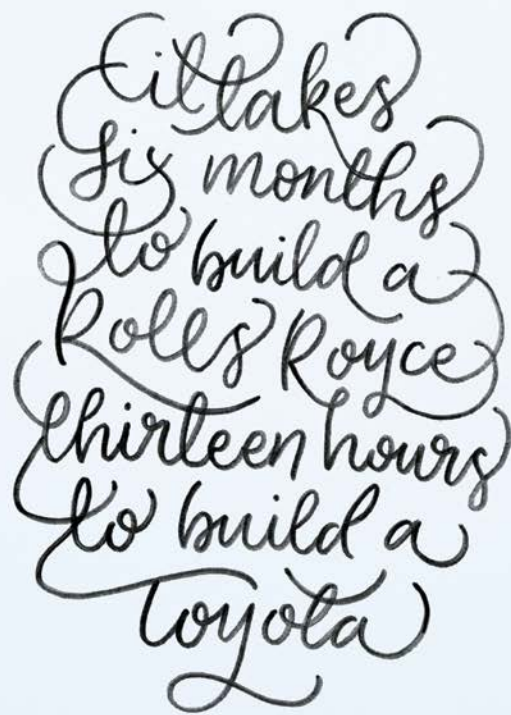 it takes
six months
to build a
Rolls Royce
thirteen hours
to build a
Toyota